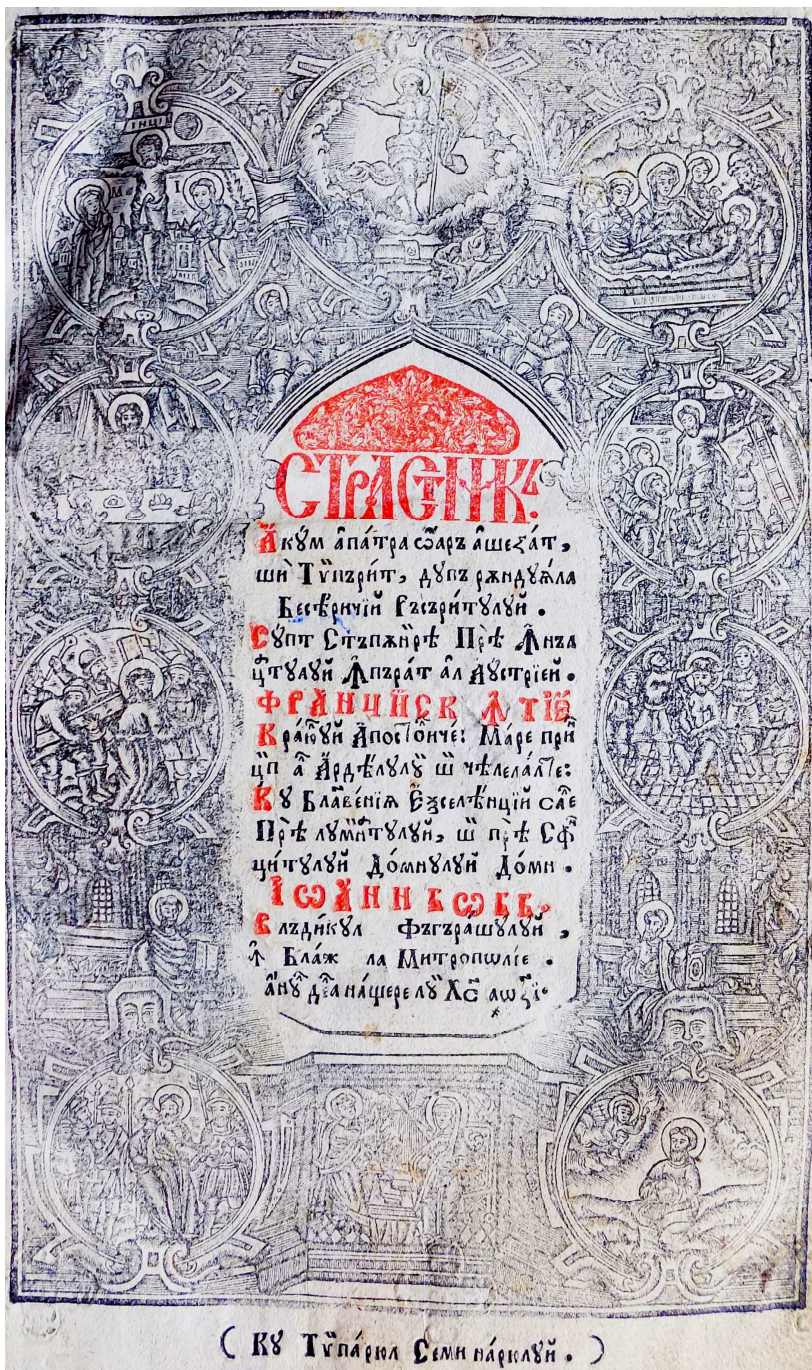 ІНЦІ
СТРАСТНИКЪ.
Акꙋм апатра ѡаръ ашеꙁат,
ши Тѵпърит, дꙋпъ рѫндꙋѧла
Бесѣричій Ръсъритꙋлꙋй.
Сꙋпт Стъпѫнирѣ Прѣ Ꙟнъа
цтꙋлꙋй Ꙟпърат ал Аꙋстріей.
ФРАНЦИСК Ꙟ ТІЮ
Краюлꙋй Апостоличе: Маре прин
цип ал Ардѣлꙋлꙋй ши челелалте:
Кꙋ Благовенія Еѯселѣнцій сале
Прѣ лꙋминатꙋлꙋй, ши прѣ Сфин
цитꙋлꙋй Домнꙋлꙋй Домн.
ІѠАНН БѠББ.
Влъдикꙋл Фъгърашꙋлꙋй,
Ꙟ Блаж ла Митрополіе.
анꙋл дела нащере лꙋй Хс аѡꙁі.
( Кꙋ Тѵпарюл Семинарюлꙋй. )